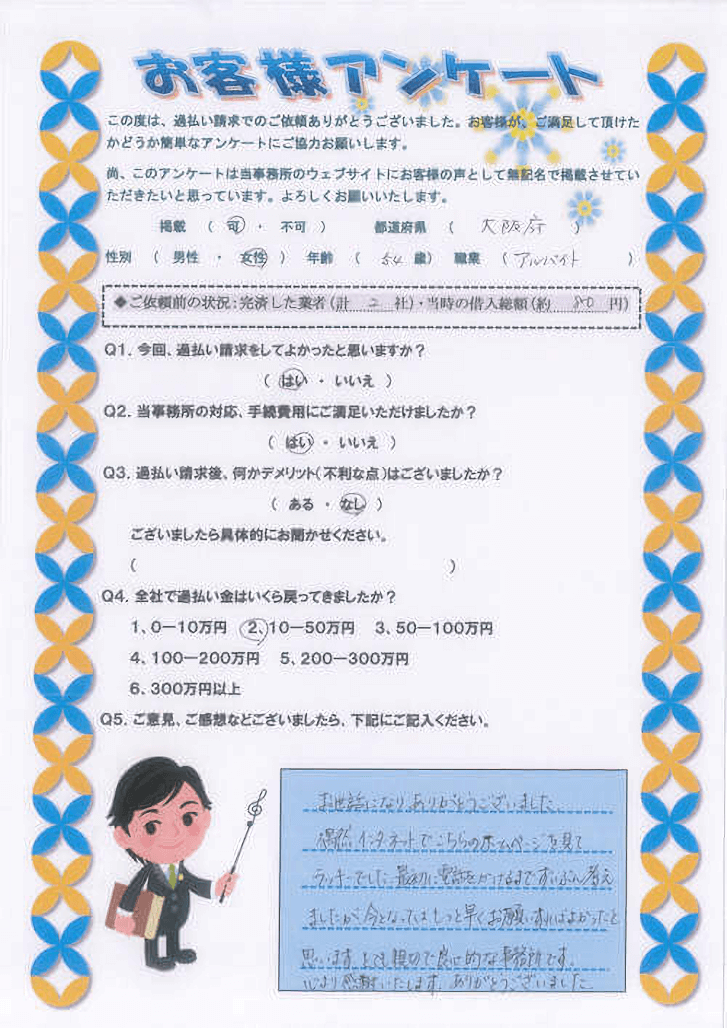 お客様アンケート
この度は、過払い請求でのご依頼ありがとうございました。お客様が、ご満足して頂けた
かどうか簡単なアンケートにご協力お願いします。
尚、このアンケートは当事務所のウェブサイトにお客様の声として無記名で掲載させてい
ただきたいと思っています。よろしくお願いいたします。
掲載 ( 可 ・ 不可 ) 都道府県 ( 大阪府 )
性別 ( 男性 ・ 女性 ) 年齢 ( 54 歳) 職業 ( アルバイト )
◆ご依頼前の状況:完済した業者(計 2 社)・当時の借入総額(約 80 円)
Q1. 今回、過払い請求をしてよかったと思いますか?
( はい ・ いいえ )
Q2. 当事務所の対応、手続費用にご満足いただけましたか?
( はい ・ いいえ )
Q3. 過払い請求後、何かデメリット(不利な点)はございましたか?
( ある ・ なし )
ございましたら具体的にお聞かせください。
( )
Q4. 全社で過払い金はいくら戻ってきましたか?
1、0−10万円 2、10−50万円 3、50−100万円
4、100−200万円 5、200−300万円
6、300万円以上
Q5. ご意見、ご感想などございましたら、下記にご記入ください。
お世話になりありがとうございました
偶然インターネットでこちらのホームページを見て
ラッキーでした 最初に電話をかけるまでずいぶん考え
ましたが今となってはもっと早くお願いすればよかったと
思います とても親切で良心的な事務所です。
心より感謝いたします。ありがとうございました